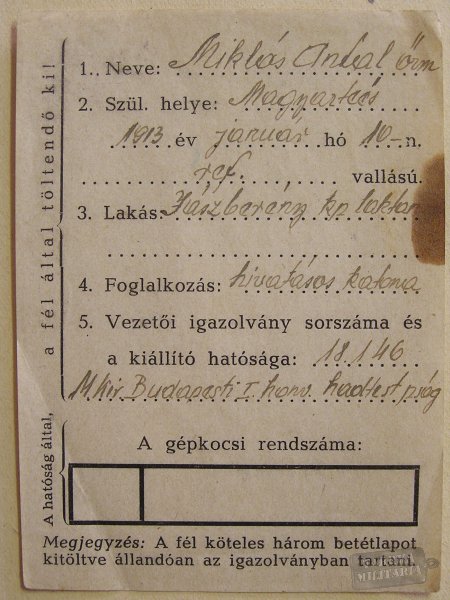 a fél által töltendő ki!
1. Neve: Miklós Antal őrm
2. Szül. helye: Magyarkés
1913 év január hó 10-n.
ref. vallású.
3. Lakás: Jászberény kp laktan
4. Foglalkozás: hivatásos katona
5. Vezetői igazolvány sorszáma és
a kiállító hatósága: 18.146
M. Kir. Budapesti I. honv. hadtest prság
A hatóság által,
A gépkocsi rendszáma:
Megjegyzés: A fél köteles három betétlapot
kitöltve állandóan az igazolványban tartani.
MILITARIA